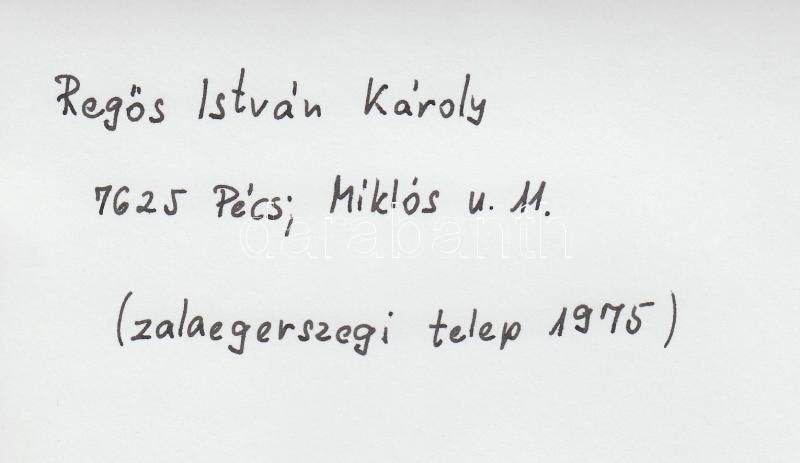 Regős István Károly
7625 Pécs; Miklós u. 11.
darabanth
(zalaegerszegi telep 1975)